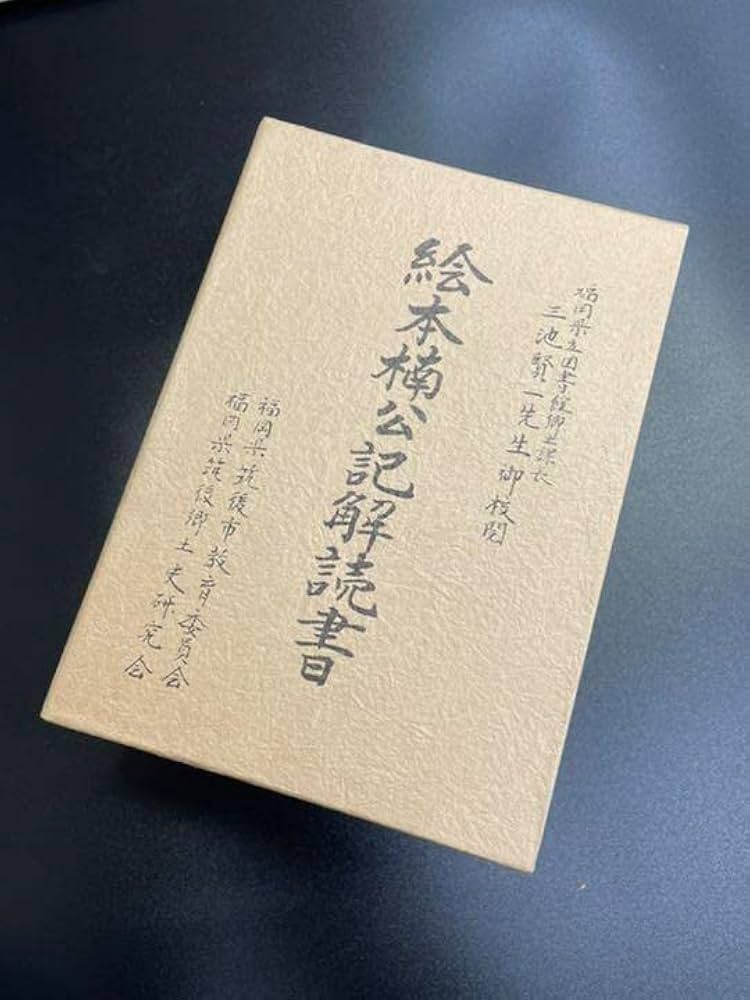 福岡県立図書館郷土課長
三池賢一先生御校閲
絵本楠公記解読書
福岡県筑後市教育委員会
福岡県筑後郷土史研究会